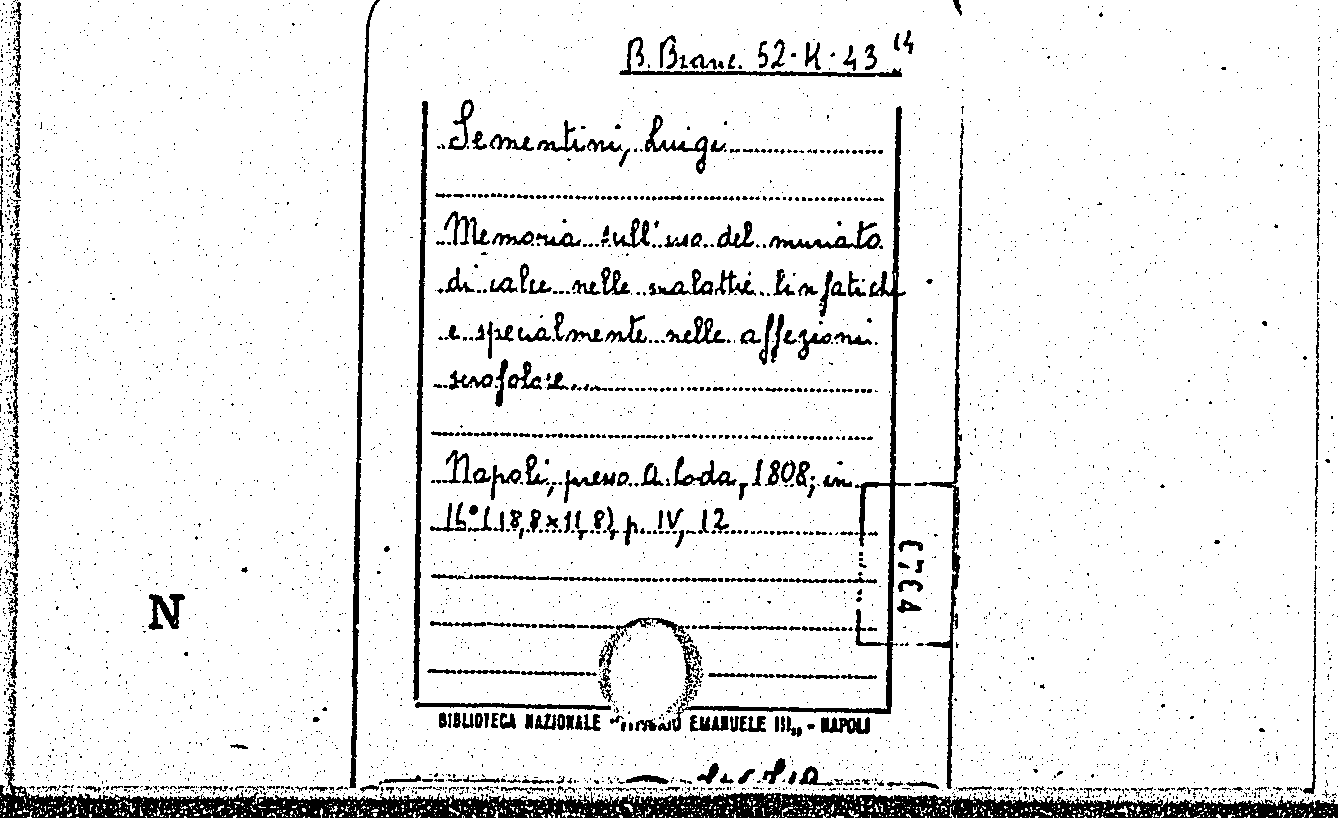 B. Branc. 52-K-43 14
Sementini, Luigi
Memoria sull'uso del muriato
di calce nelle malattie linfatiche
e specialmente nelle affezioni
scrofolare...
Napoli, presso A. Coda, 1808; in
16° (18,8x11,8), p. IV, 12
N
BIBLIOTECA NAZIONALE "VITTORIO EMANUELE III„ - NAPOLI